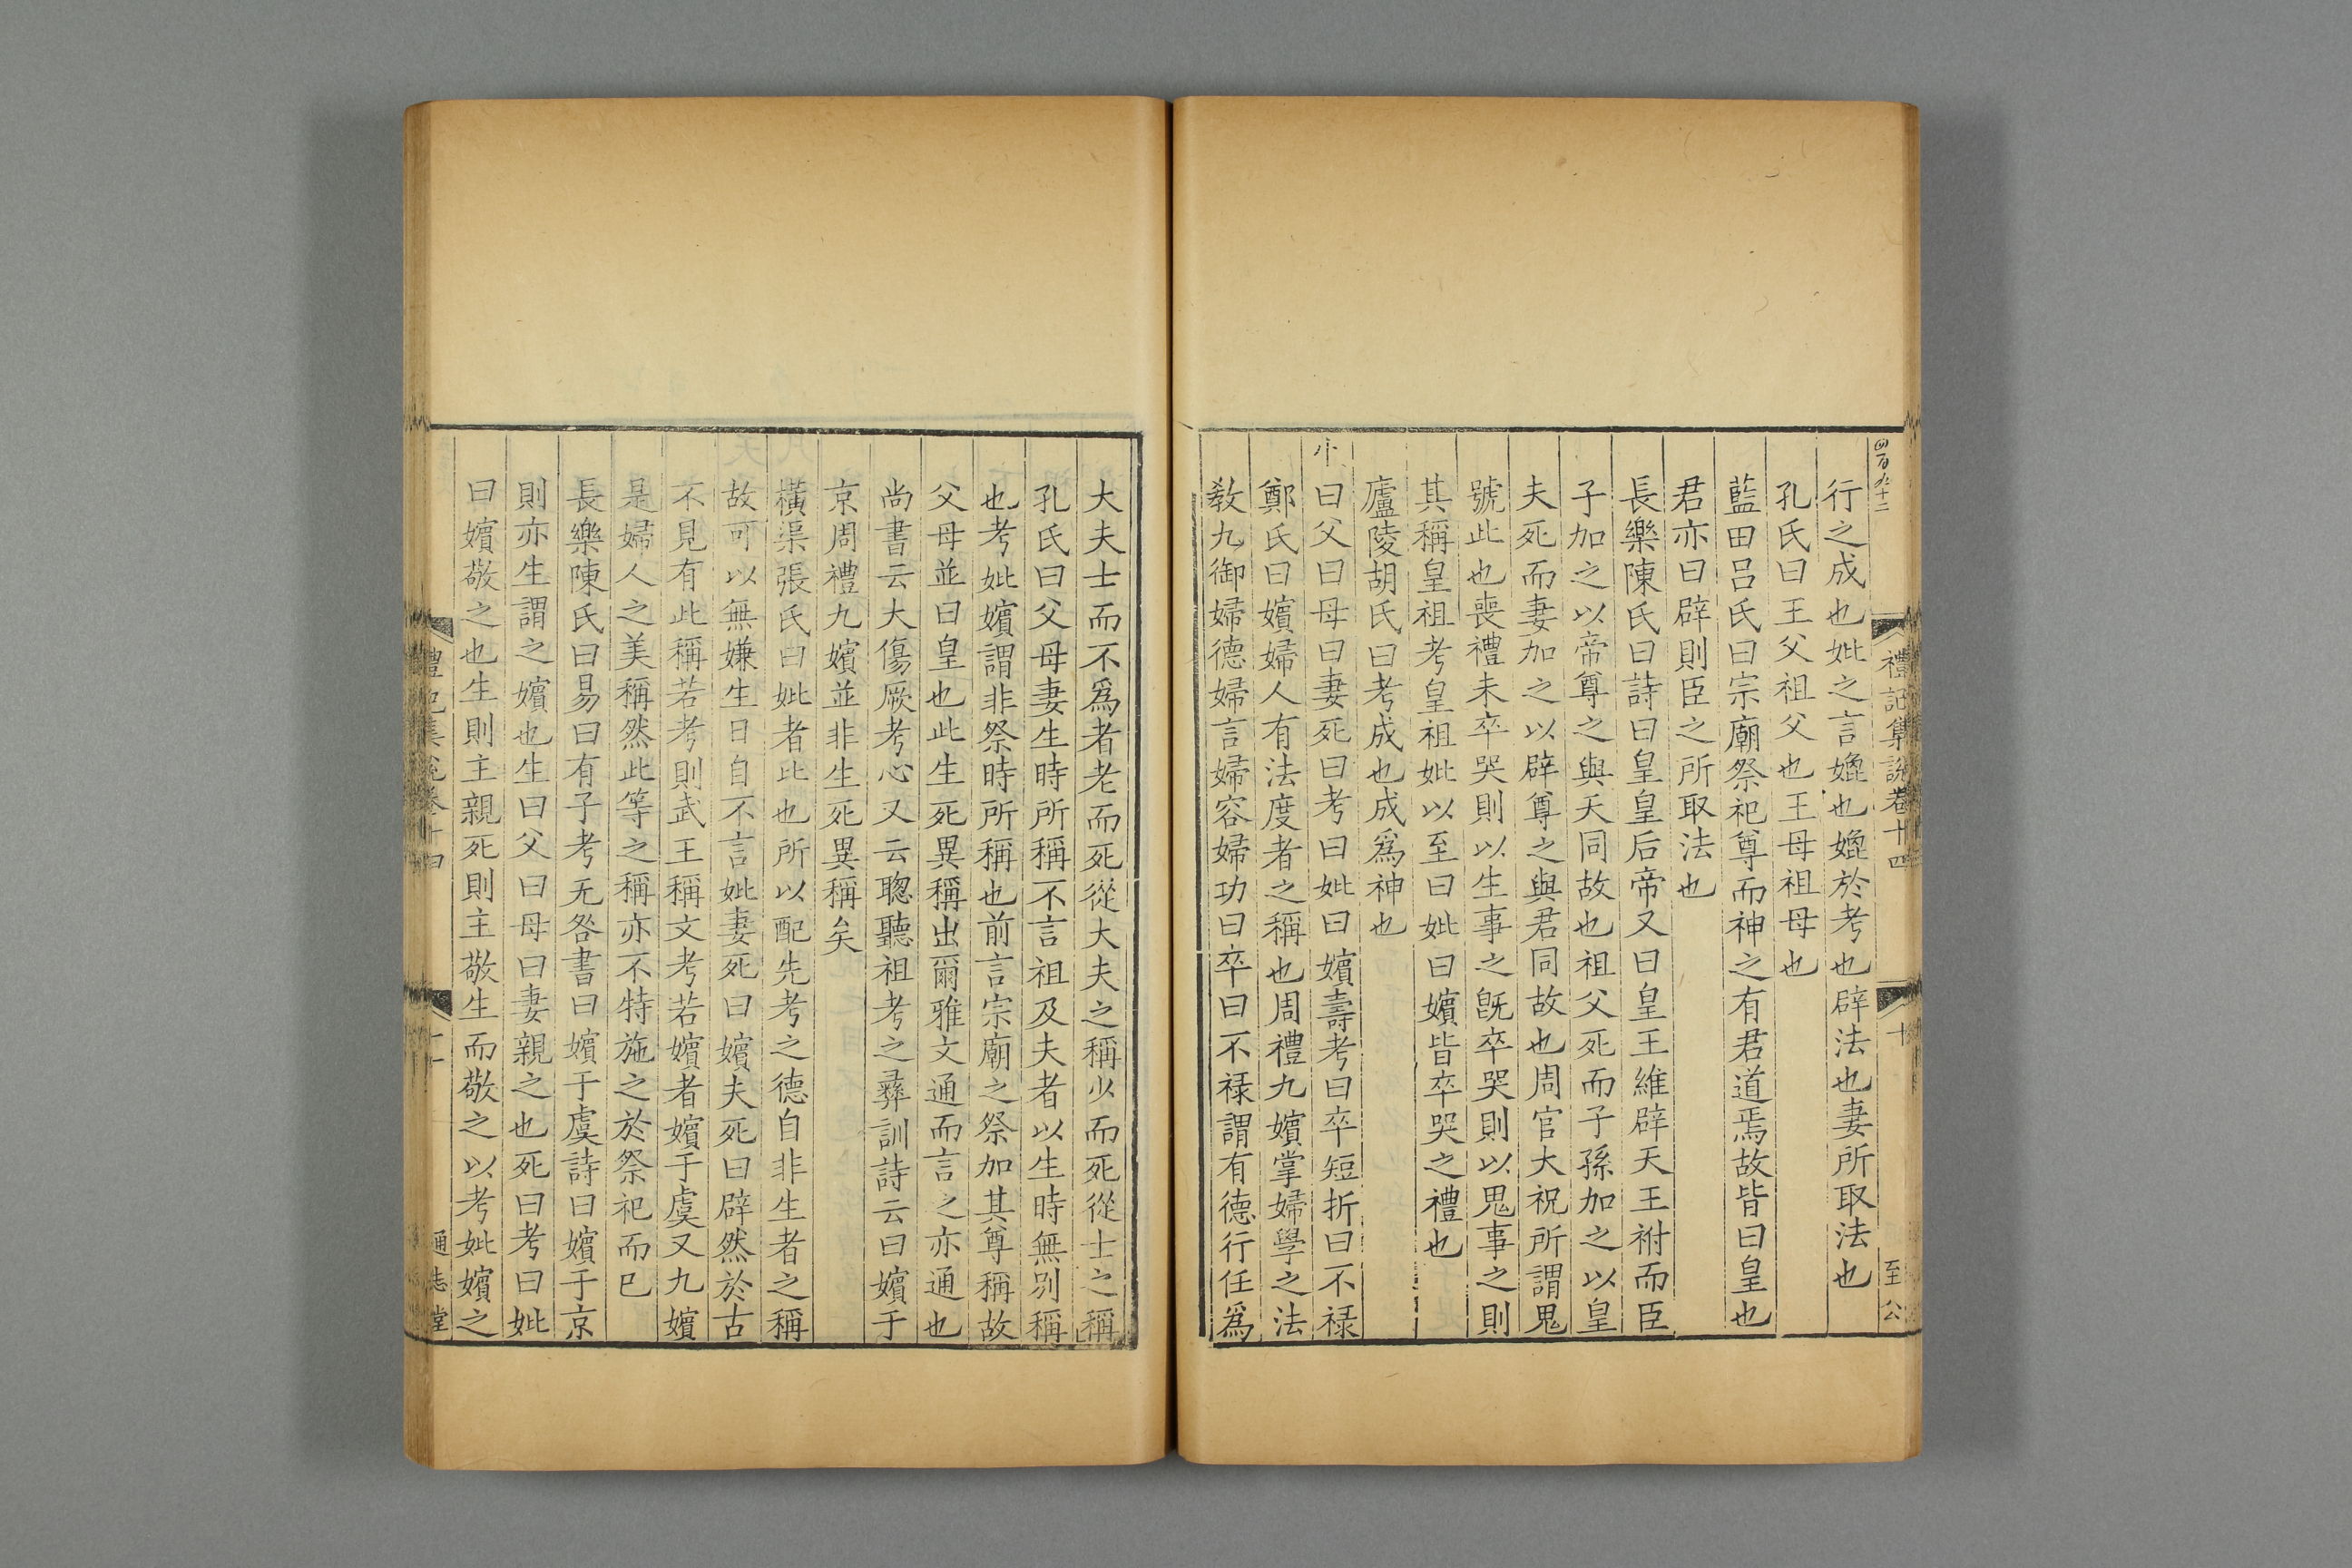 四百九十二
禮記集說卷十四
十
至公
行之成也妣之言媲也媲於考也辟法也妻所取法也
孔氏曰王父祖父也王母祖母也
藍田呂氏曰宗廟祭祀尊而神之有君道焉故皆曰皇也
君亦曰辟則臣之所取法也
長樂陳氏曰詩曰皇皇后帝又曰皇王維辟天王祔而臣
子加之以帝尊之與天同故也祖父死而子孫加之以皇
夫死而妻加之以辟尊之與君同故也周官大祝所謂鬼
號此也喪禮未卒哭則以生事之旣卒哭則以鬼事之則
其稱皇祖考皇祖妣以至曰妣曰嬪皆卒哭之禮也
廬陵胡氏曰考成也成爲神也
曰父曰母曰妻死曰考曰妣曰嬪壽考曰卒短折曰不禄
鄭氏曰嬪婦人有法度者之稱也周禮九嬪掌婦學之法
敎九御婦德婦言婦容婦功曰卒曰不禄謂有德行任爲
大夫士而不爲者老而死從大夫之稱少而死從士之稱
孔氏曰父母妻生時所稱不言祖及夫者以生時無別稱
也考妣嬪謂非祭時所稱也前言宗廟之祭加其尊稱故
父母並曰皇也此生死異稱出爾雅文通而言之亦通也
尚書云大傷厥考心又云聦聽祖考之彝訓詩云曰嬪于
京周禮九嬪並非生死異稱矣
橫渠張氏曰妣者比也所以配先考之德自非生者之稱
故可以無嫌生日自不言妣妻死曰嬪夫死曰辟然於古
不見有此稱若考則武王稱文考若嬪者嬪于虞又九嬪
是婦人之美稱然此等之稱亦不特施之於祭祀而已
長樂陳氏曰易曰有子考无咎書曰嬪于虞詩曰嬪于京
則亦生謂之嬪也生曰父曰母曰妻親之也死曰考曰妣
曰嬪敬之也生則主親死則主敬生而敬之以考妣嬪之
禮記集說卷十四
十一
通志堂